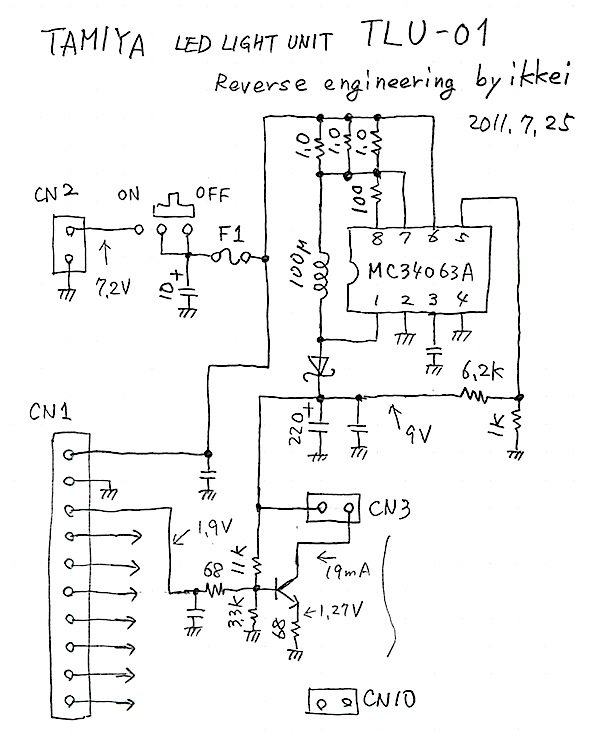 TAMIYA LED LIGHT UNIT TLU-01
Reverse engineering by ikkei
2011.7.25
CN2 ON OFF
F1
7.2V
10 +
1.0 1.0 1.0
100
8 7 6 5
MC34063A
1 2 3 4
100μ
6.2k
1k
220 +
9V
CN1
CN3
1.9V
68
11k
3.3k
19mA
1.27V
68
CN10